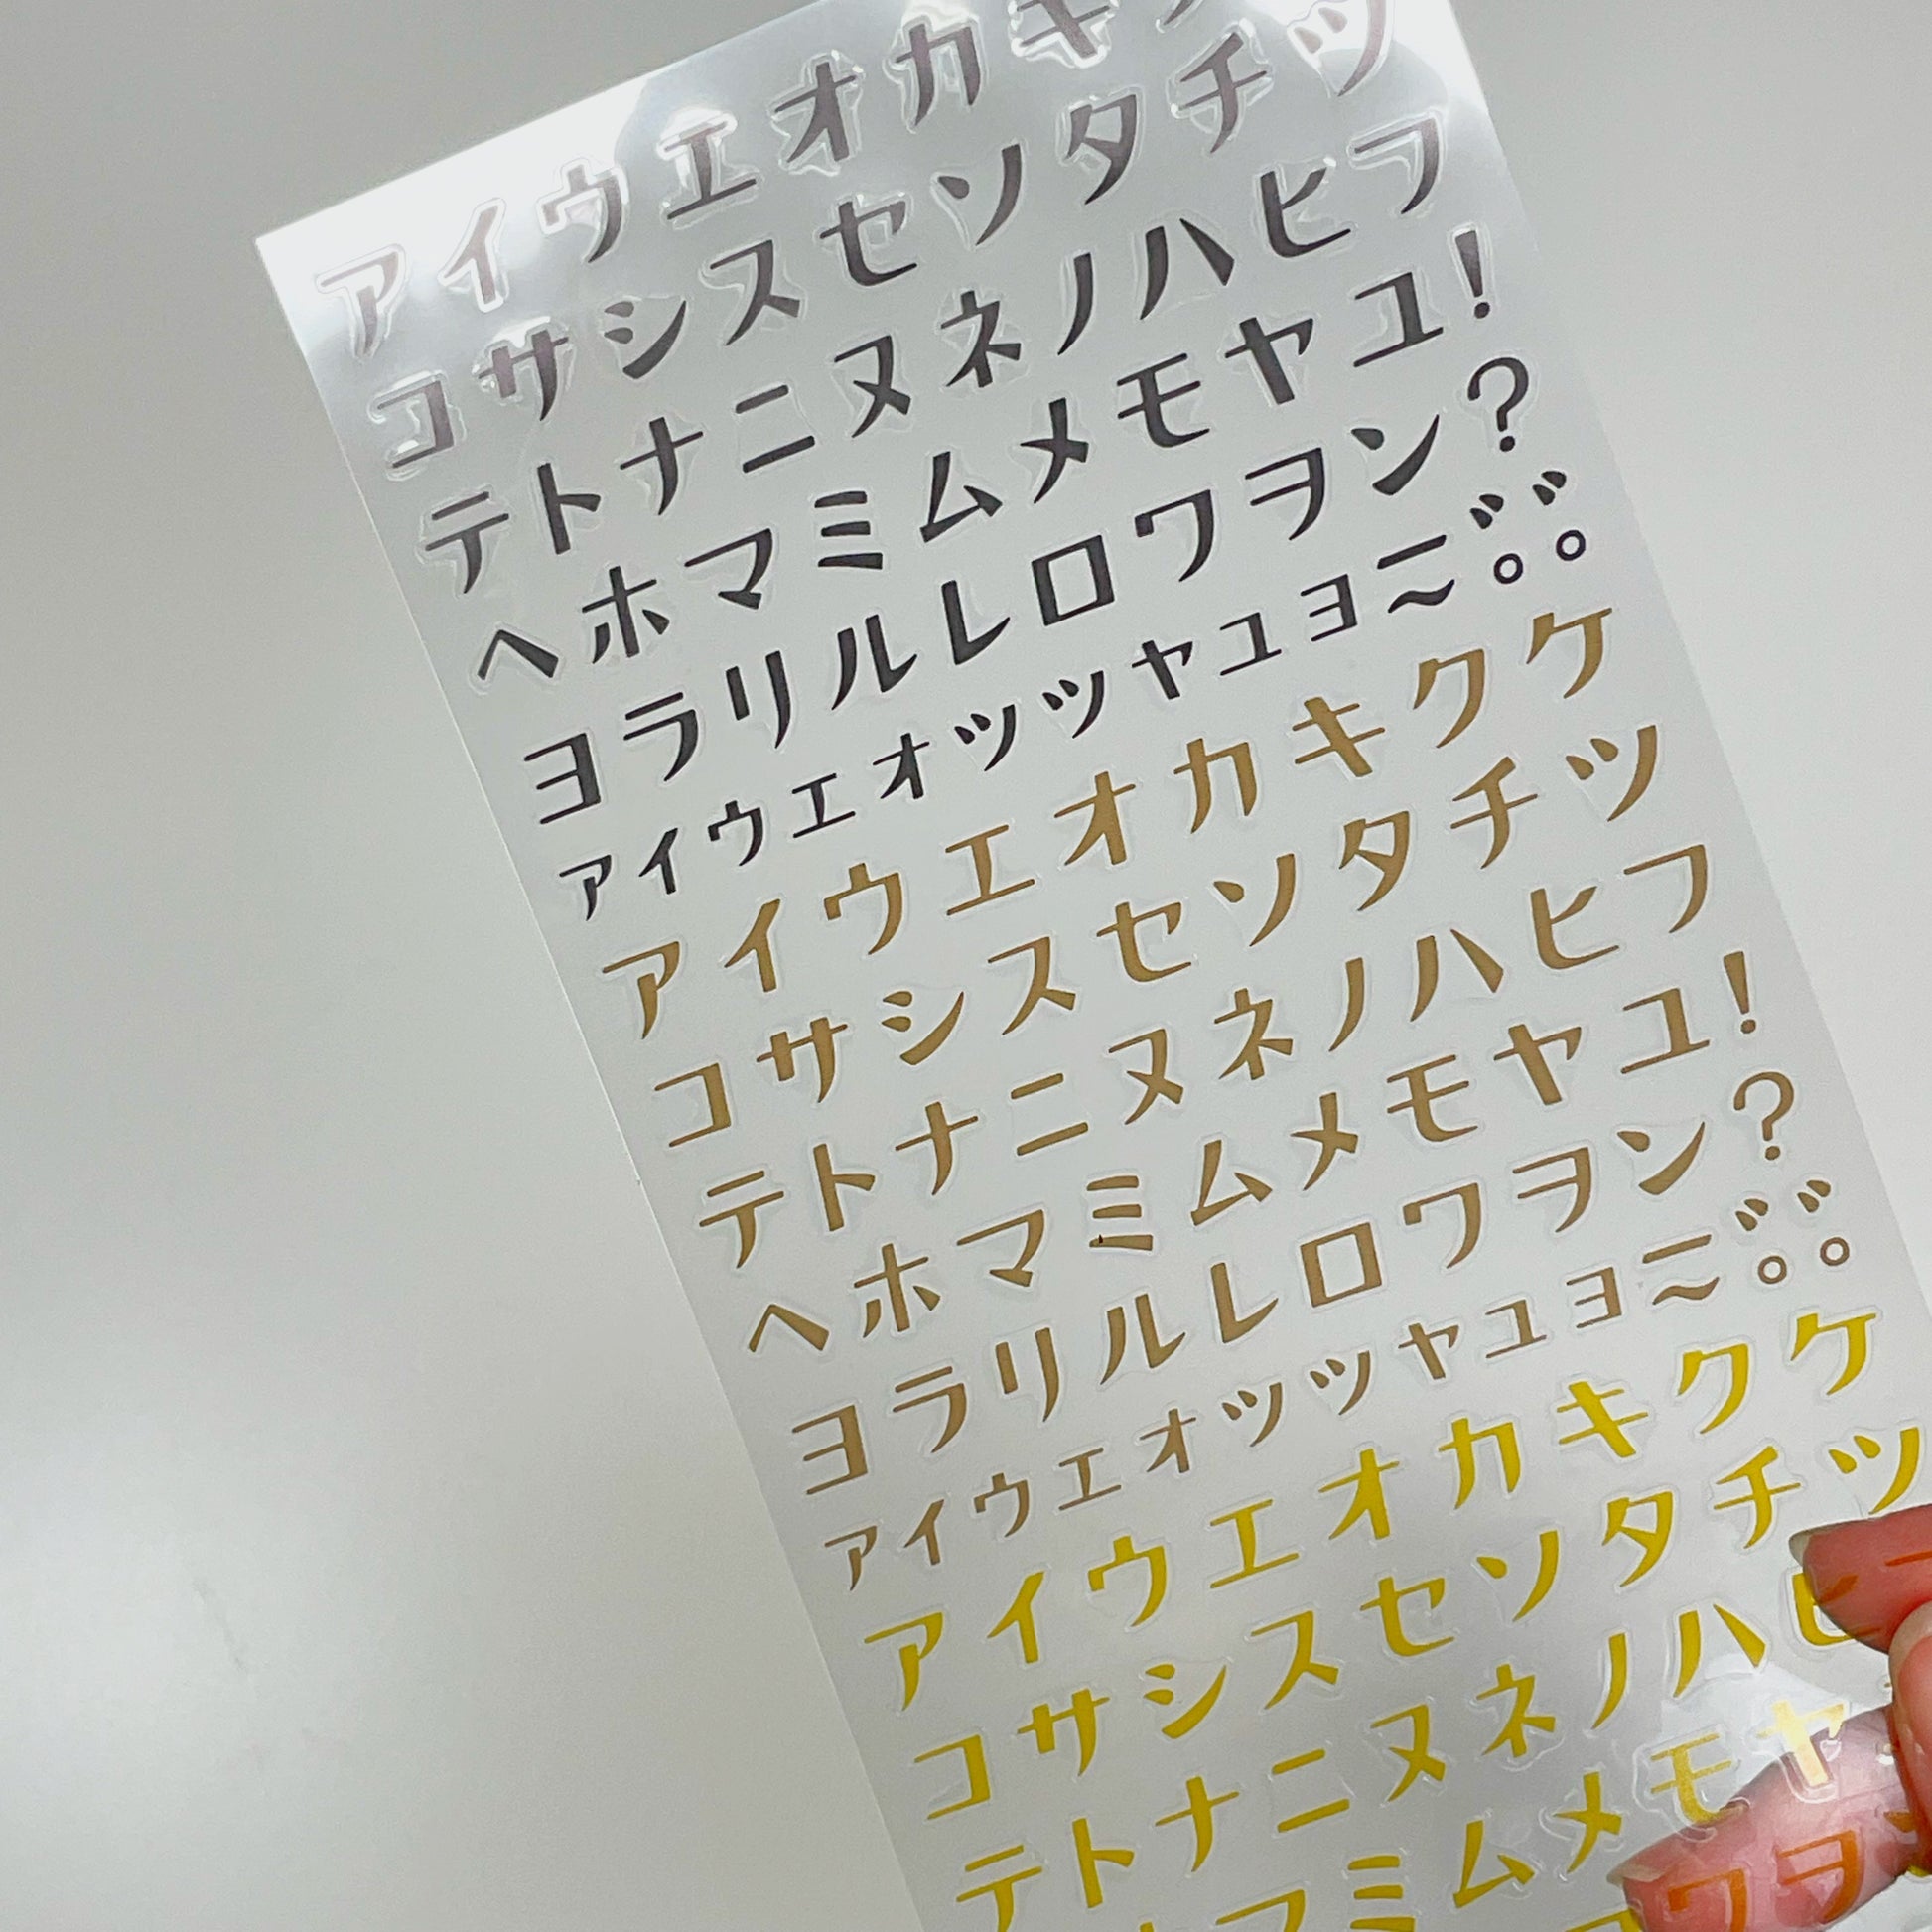 アイウエオカキ
コサシスセソタチツ
テトナニヌネノハヒフ
ヘホマミムメモヤユ!
ヨラリルレロワヲン?
ァィゥェォッッャュョー~゛゛゜゜
アイウエオカキクケ
コサシスセソタチツ
テトナニヌネノハヒフ
ヘホマミムメモヤユ!
ヨラリルレロワヲン?
ァィゥェォッッャュョー~゛゛゜゜
アイウエオカキクケ
コサシスセソタチツ
テトナニヌネノハヒ
マミムメモヤ
ワヲ